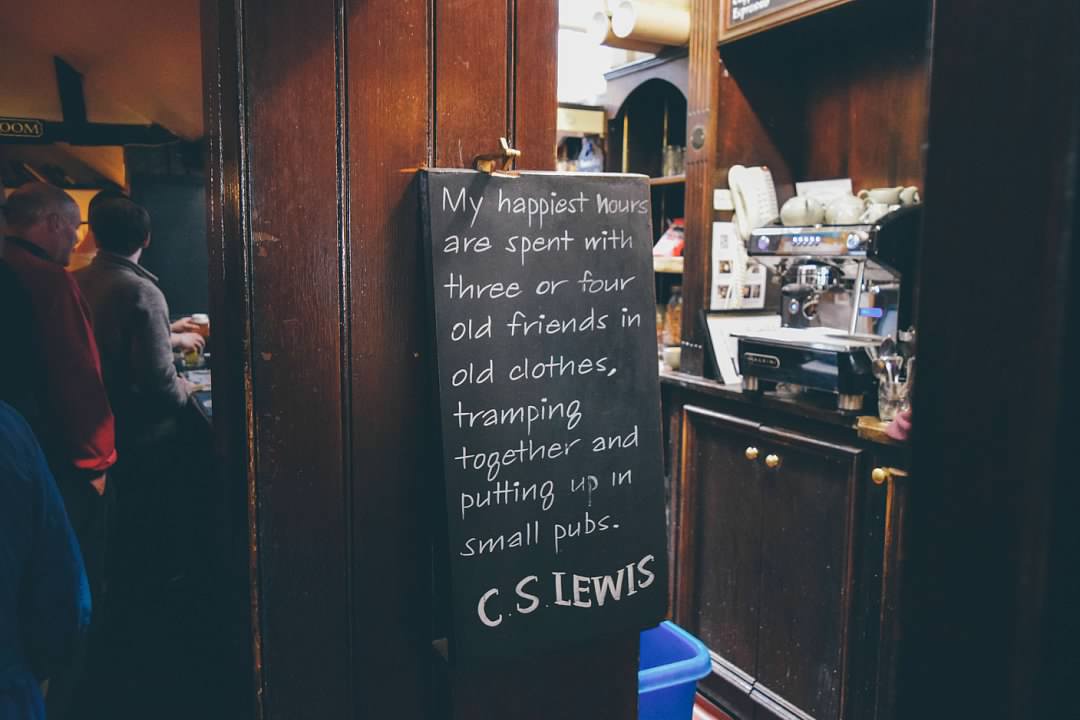 OOM
My happiest hours
are spent with
three or four
old friends in
old clothes,
tramping
together and
putting up in
small pubs.
C.S.LEWIS